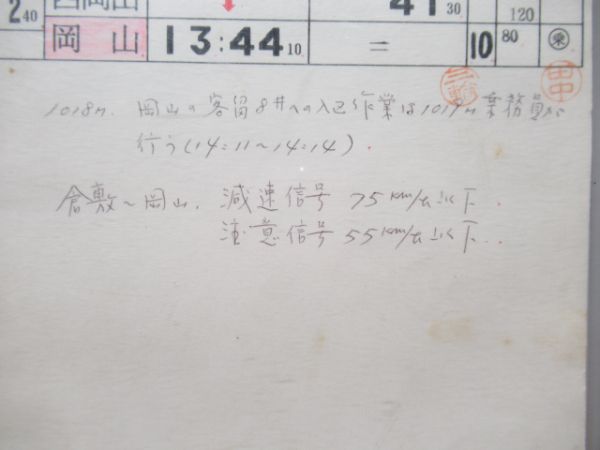 2 40 西岡山 ↓ 41 30 120
岡山 13:44 10 = 10 80 乗
三宅 田中
1018M. 岡山の客留8井への入区作業は1019M乗務員が
行う(14:11〜14:14).
倉敷〜岡山. 減速信号 75km/h以下.
注意信号 55km/h以下.